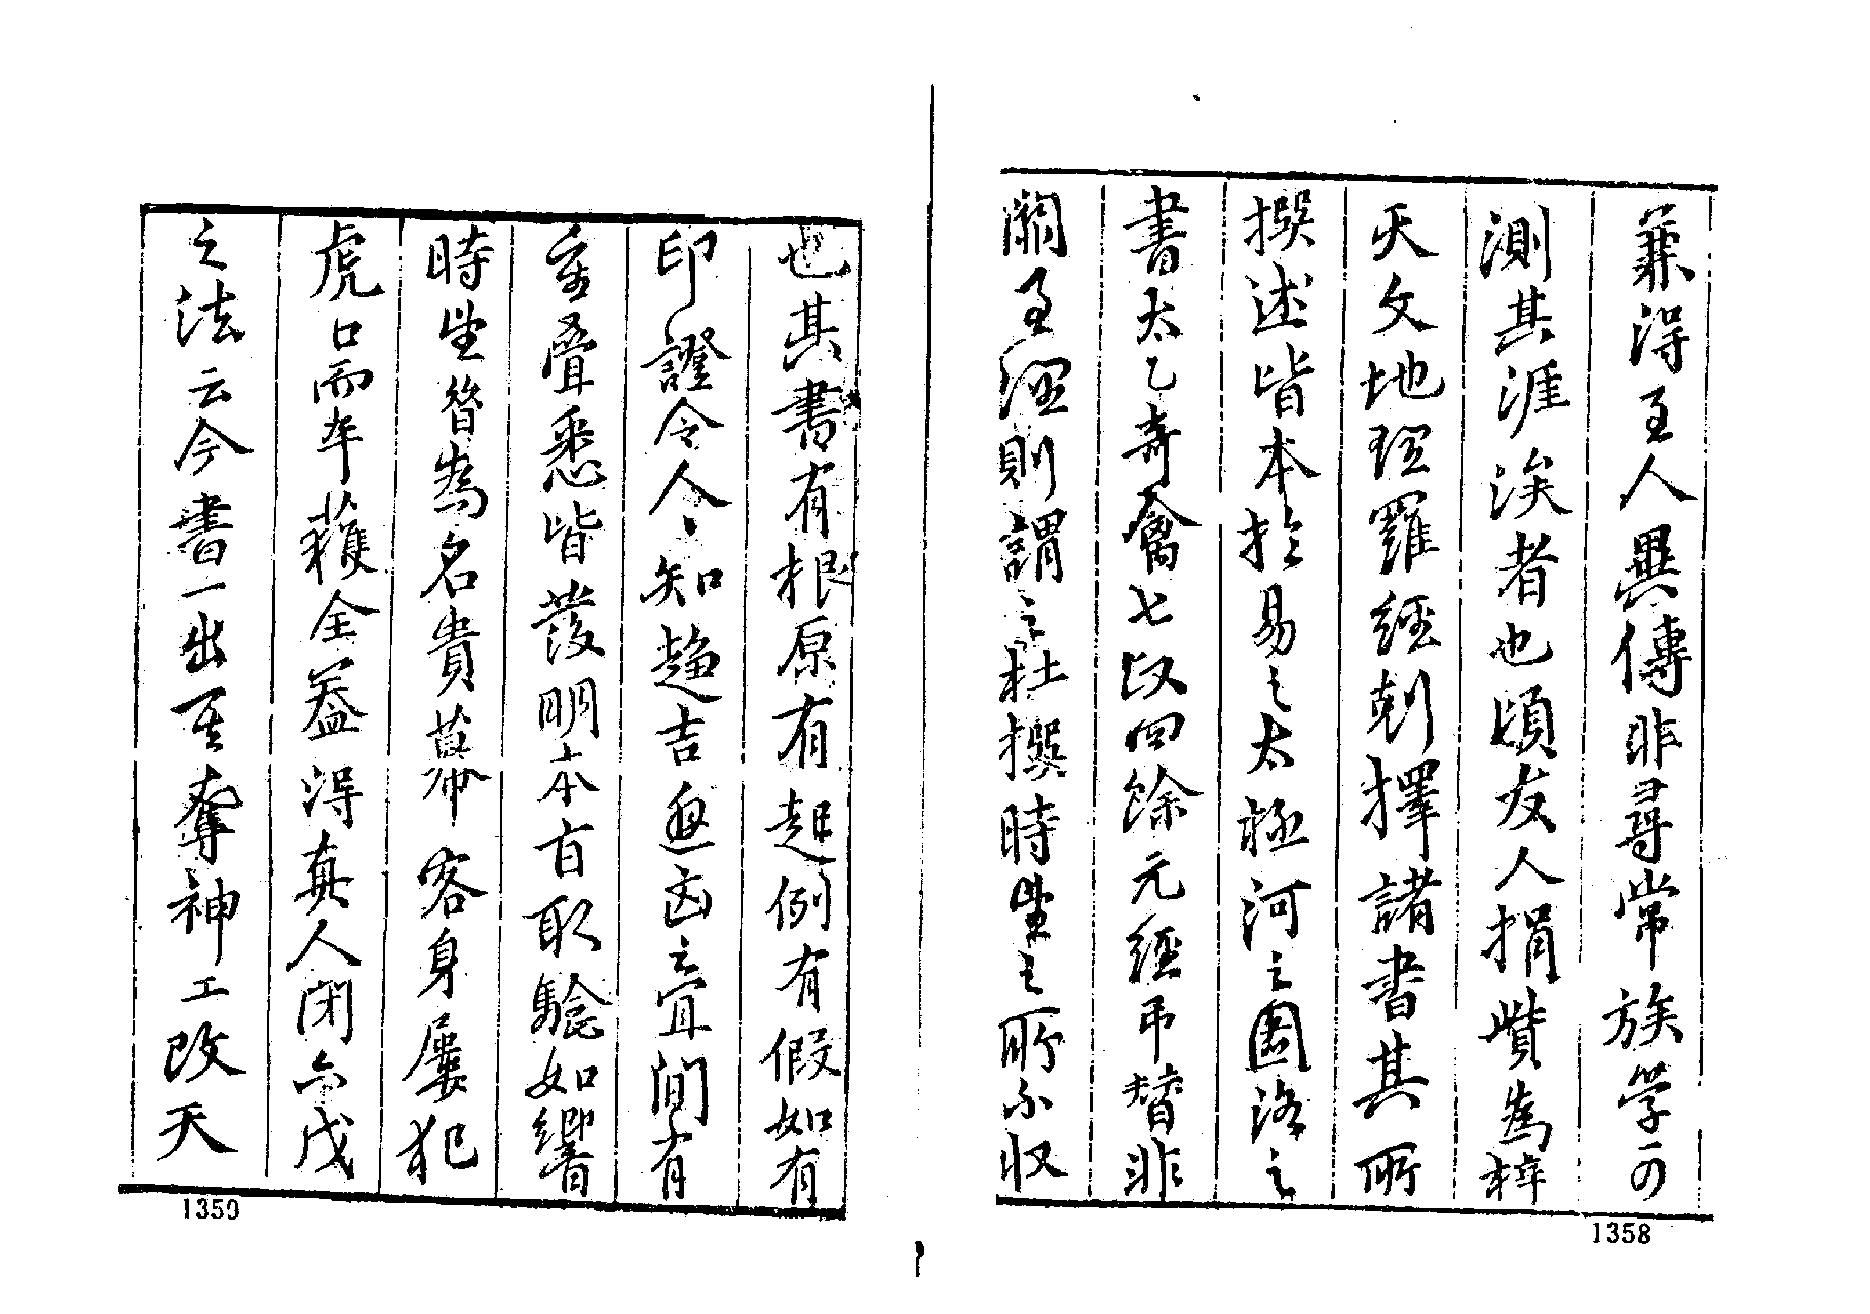 兼得至人異傳非尋常族学可
測其涯涘者也頃友人捐貲為梓
天文地理羅經剋擇諸書其所
撰述皆本於易之太極河之圖洛之
書太乙奇禽七政四餘元經吊替非
關至理則謂之杜撰時生之所不収
1358
也其書有根原有起例有假如有
印證令人〻知趨吉避凶之宜間有
重叠悉皆發明本旨取驗如響
時生昝為名貴幕客身屢犯
虎口而卒獲全蓋得真人閉六戊
之法云今書一出至奪神工改天
1359